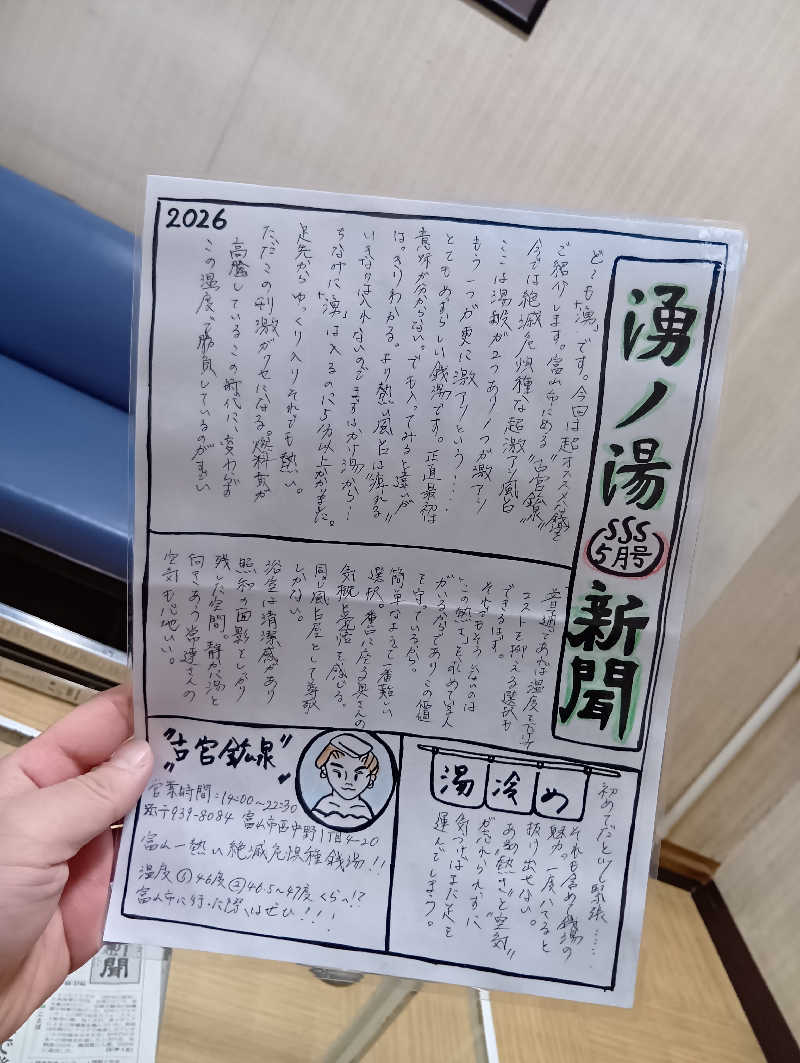 2026
湧ノ湯
SSS
5月号
新聞
どーも「湧」です。今回は超オススメな銭湯を
ご紹介します。富山市にある“古宮鉱泉”
今では絶滅危惧種な超激アツ風呂
ここは湯船が2つあり1つが激アツ
もう一つが更に激アツという….
とてもめずらしい銭湯です。正直最初は
意味が分からない。でも入ってみると違いが
はっきりわかる。より熱い風呂は“痺れる”
いきなりは入れないのでまずはかけ湯から…
ちなみに「湧」は入るのに5分以上かかりました。
足先からゆっくり入りそれでも熱い。
ただこの刺激がクセになる。燃料費が
高騰しているこの時代に変わらず
この温度で勝負しているのがすごい
普通であれば温度を下げて
コストを抑える選択も
できるはず。
それでもそうしないのは
“この熱さ”を求めている人
がいるからであり、この価値
を守っているから。
簡単なようで一番難しい
選択。番台に座る奥さんの
気概と覚悟を感じる。
同じ風呂屋として尊敬
しかない。
浴室は清潔感があり
昭和の面影をしっかり
残した空間。静かに湯と
向きあう常連さんの
空気も心地いい。
湯冷め
初めてだと少し緊張……
それも含め銭湯の
魅力。一度ハマると
抜け出せない。
あの“熱さ”と“空気”
が忘れられずに
気づけばまた足を
運んでしまう。
“古宮鉱泉”
営業時間:14:00~22:30
〒939-8084 富山市西中野1丁目4-20
富山一熱い絶滅危惧種銭湯!!
温度①46度②46.5~47度くらい!?
富山市に行った際はぜひ!!!
新聞